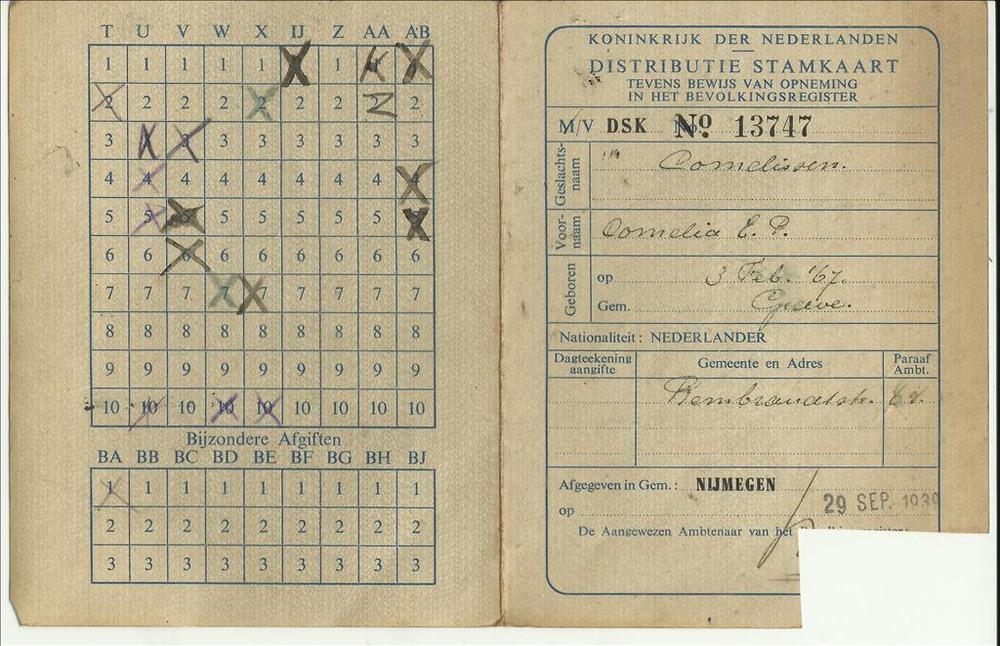 T U V W X IJ Z AA AB
1 1 1 1 1 1
2 2 2 2 2 2 2 2
3 3 3 3 3 3 3
4 4 4 4 4 4 4 4 4
5 5 5 5 5 5 5
6 6 6 6 6 6 6 6 6
7 7 7 7 7 7 7 7 7
8 8 8 8 8 8 8 8 8
9 9 9 9 9 9 9 9 9
10 10 10 10 10 10 10 10 10
Bijzondere Afgiften
BA BB BC BD BE BF BG BH BJ
1 1 1 1 1 1 1 1 1
2 2 2 2 2 2 2 2 2
3 3 3 3 3 3 3 3 3
KONINKRIJK DER NEDERLANDEN
DISTRIBUTIE STAMKAART
TEVENS BEWIJS VAN OPNEMING
IN HET BEVOLKINGSREGISTER
M/V DSK No 13747
Geslachts-
naam
Cornelissen.
Voor-
naam
Cornelia E. P.
Geboren
op 3 Feb. '67.
Gem. Grave.
Nationaliteit: NEDERLANDER
Dagteekening
aangifte
Gemeente en Adres
Paraaf
Ambt.
Rembrandtstr. 62.
Afgegeven in Gem.: NIJMEGEN
op 29 SEP. 1939
De Aangewezen Ambtenaar van het